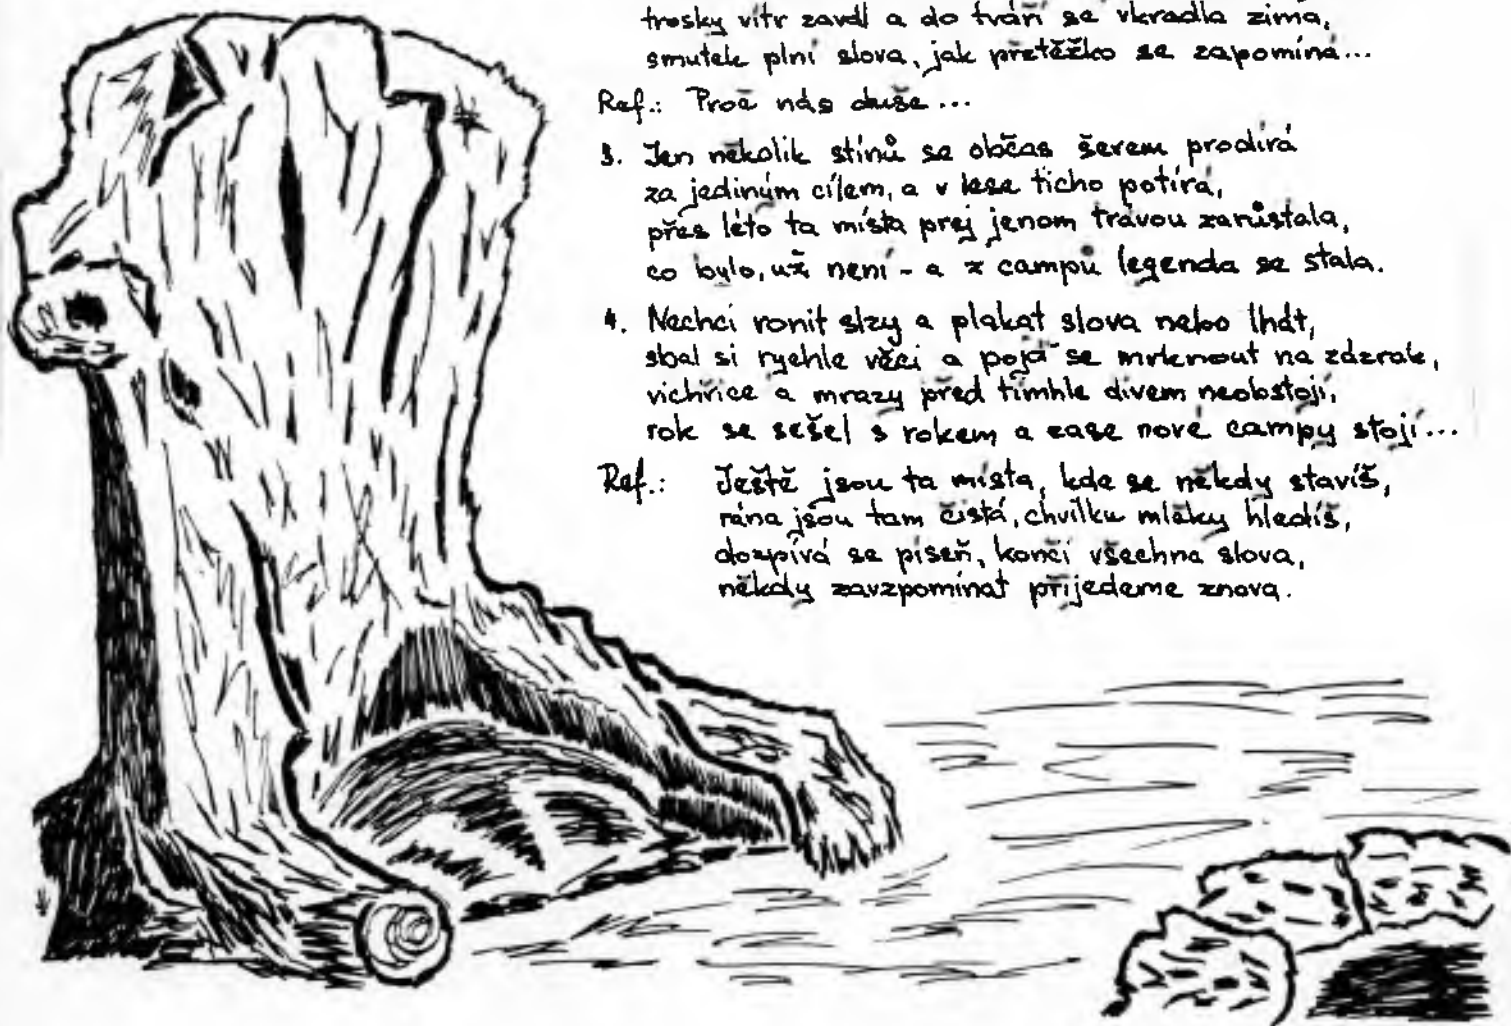 trosky vítr zavál a do tváří se vkradla zima,
smutek plní slova, jak přetěžko se zapomíná...
Ref.: Proč nás duše...
3. Jen několik stínů se občas šerem prodírá
za jediným cílem, a v lese ticho potírá,
přes léto ta místa prej jenom trávou zarůstala,
co bylo, už není - a z campů legenda se stala.
4. Nechci ronit slzy a plakat slova nebo lhát,
sbal si rychle věci a pojď se mrknout na zázrak,
vichřice a mrazy před tímhle divem neobstojí,
rok se sešel s rokem a zase nové campy stojí...
Ref.: Ještě jsou ta místa, kde se někdy stavíš,
rána jsou tam čistá, chvilku mlčky hledíš,
dozpívá se píseň, končí všechna slova,
někdy zavzpomínat přijedeme znova.